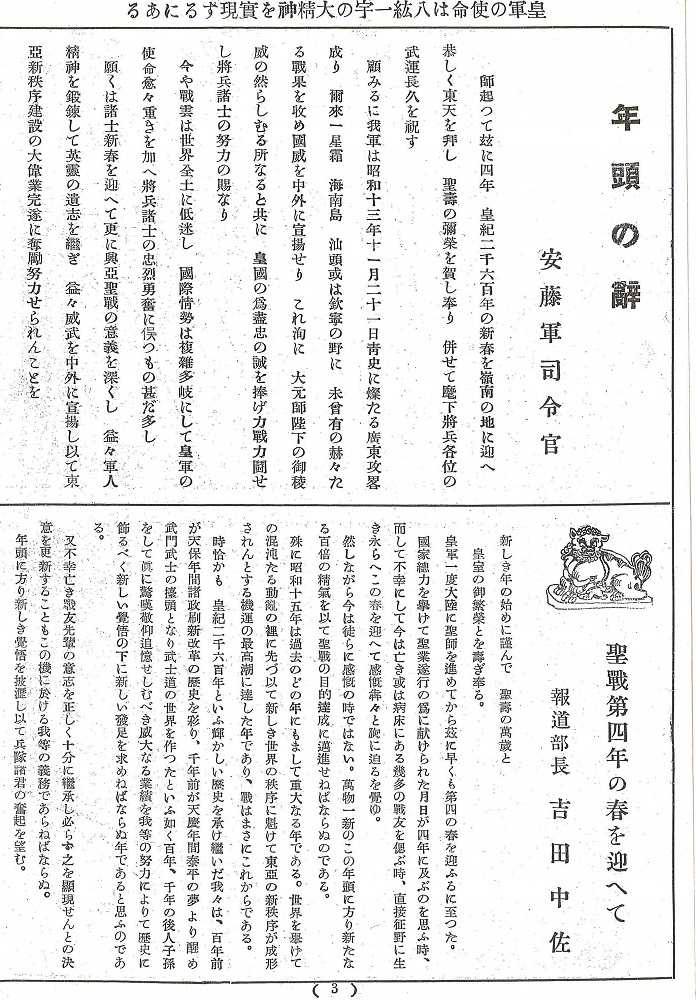 皇軍の使命は八紘一宇の大精神を實現するにある
年頭の辭
安藤軍司令官
師起つて茲に四年　皇紀二千六百年の新春を嶺南の地に迎へ
恭しく東天を拜し　聖壽の彌榮を賀し奉り　併せて麾下將兵各位の
武運長久を祝す
顧みるに我軍は昭和十三年十一月二十一日靑史に燦たる廣東攻畧
成り　爾來一星霜　海南島　汕頭或は欽寧の野に　未曾有の赫々た
る戰果を收め國威を中外に宣揚せり　これ洵に　大元帥陛下の御稜
威の然らしむる所なると共に　皇國の爲盡忠の誠を捧げ力戰力鬪せ
し將兵諸士の努力の賜なり
今や戰雲は世界全土に低迷し　國際情勢は複雜多岐にして皇軍の
使命愈々重きを加へ將兵諸士の忠烈勇奮に俟つもの甚だ多し
願くは諸士新春を迎へて更に興亞聖戰の意義を深くし　益々軍人
精神を鍛鍊して英靈の遺志を繼ぎ　益々威武を中外に宣揚し以て東
亞新秩序建設の大偉業完遂に奪勵努力せられんことを
聖戰第四年の春を迎へて
報道部長　吉田中佐
新しき年の始めに謹んで　聖壽の萬歲と
皇室の御繁榮とを壽ぎ奉る。
皇軍一度大陸に聖師を進めてから茲に早くも第四の春を迎ふるに至つた。
國家總力を擧げて聖業遂行の爲に獻けられた月日が四年に及ぶのを思ふ時、
而して不幸にして今は亡き或は病床にある幾多の戰友を偲ぶ時、直接征野に生
き永らへこの春を迎へて感慨犇々と胸に迫るを覺ゆ。
然しながら今は徒らに感慨の時ではない。萬物一新のこの年頭に方り新たな
る百倍の精氣を以て聖戰の目的達成に邁進せねばならぬのである。
殊に昭和十五年は過去のどの年にもまして重大なる年である。世界を擧げて
の混沌たる動亂の裡に先づ以て新しき世界の秩序に魁けて東亞の新秩序が成形
されんとする機運の最高潮に達した年であり、戰はまさにこれからである。
時恰かも　皇紀二千六百年といふ輝かしい歷史を承け繼いだ我々は、百年前
が天保年間諸政刷新改革の歷史を彩り、千年前が天慶年間泰平の夢より醒め
武門武士の擡頭となり武士道の世界を作つたといふ如く百年、千年の後人子孫
をして眞に驚嘆敬仰追憶せしむべき威大なる業績を我等の努力によりて歷史に
飾るべく新しい覺悟の下に新しい發足を求めねばならぬ年であると思ふのであ
る。
又不幸亡き戰友先輩の意志を正しく十分に繼承し必らず之を顯現せんとの決
意を更新することもこの機に於ける我等の義務であらねばならぬ。
年頭に方り新しき覺悟を披瀝し以て兵隊諸君の奮起を望む。
( 3 )